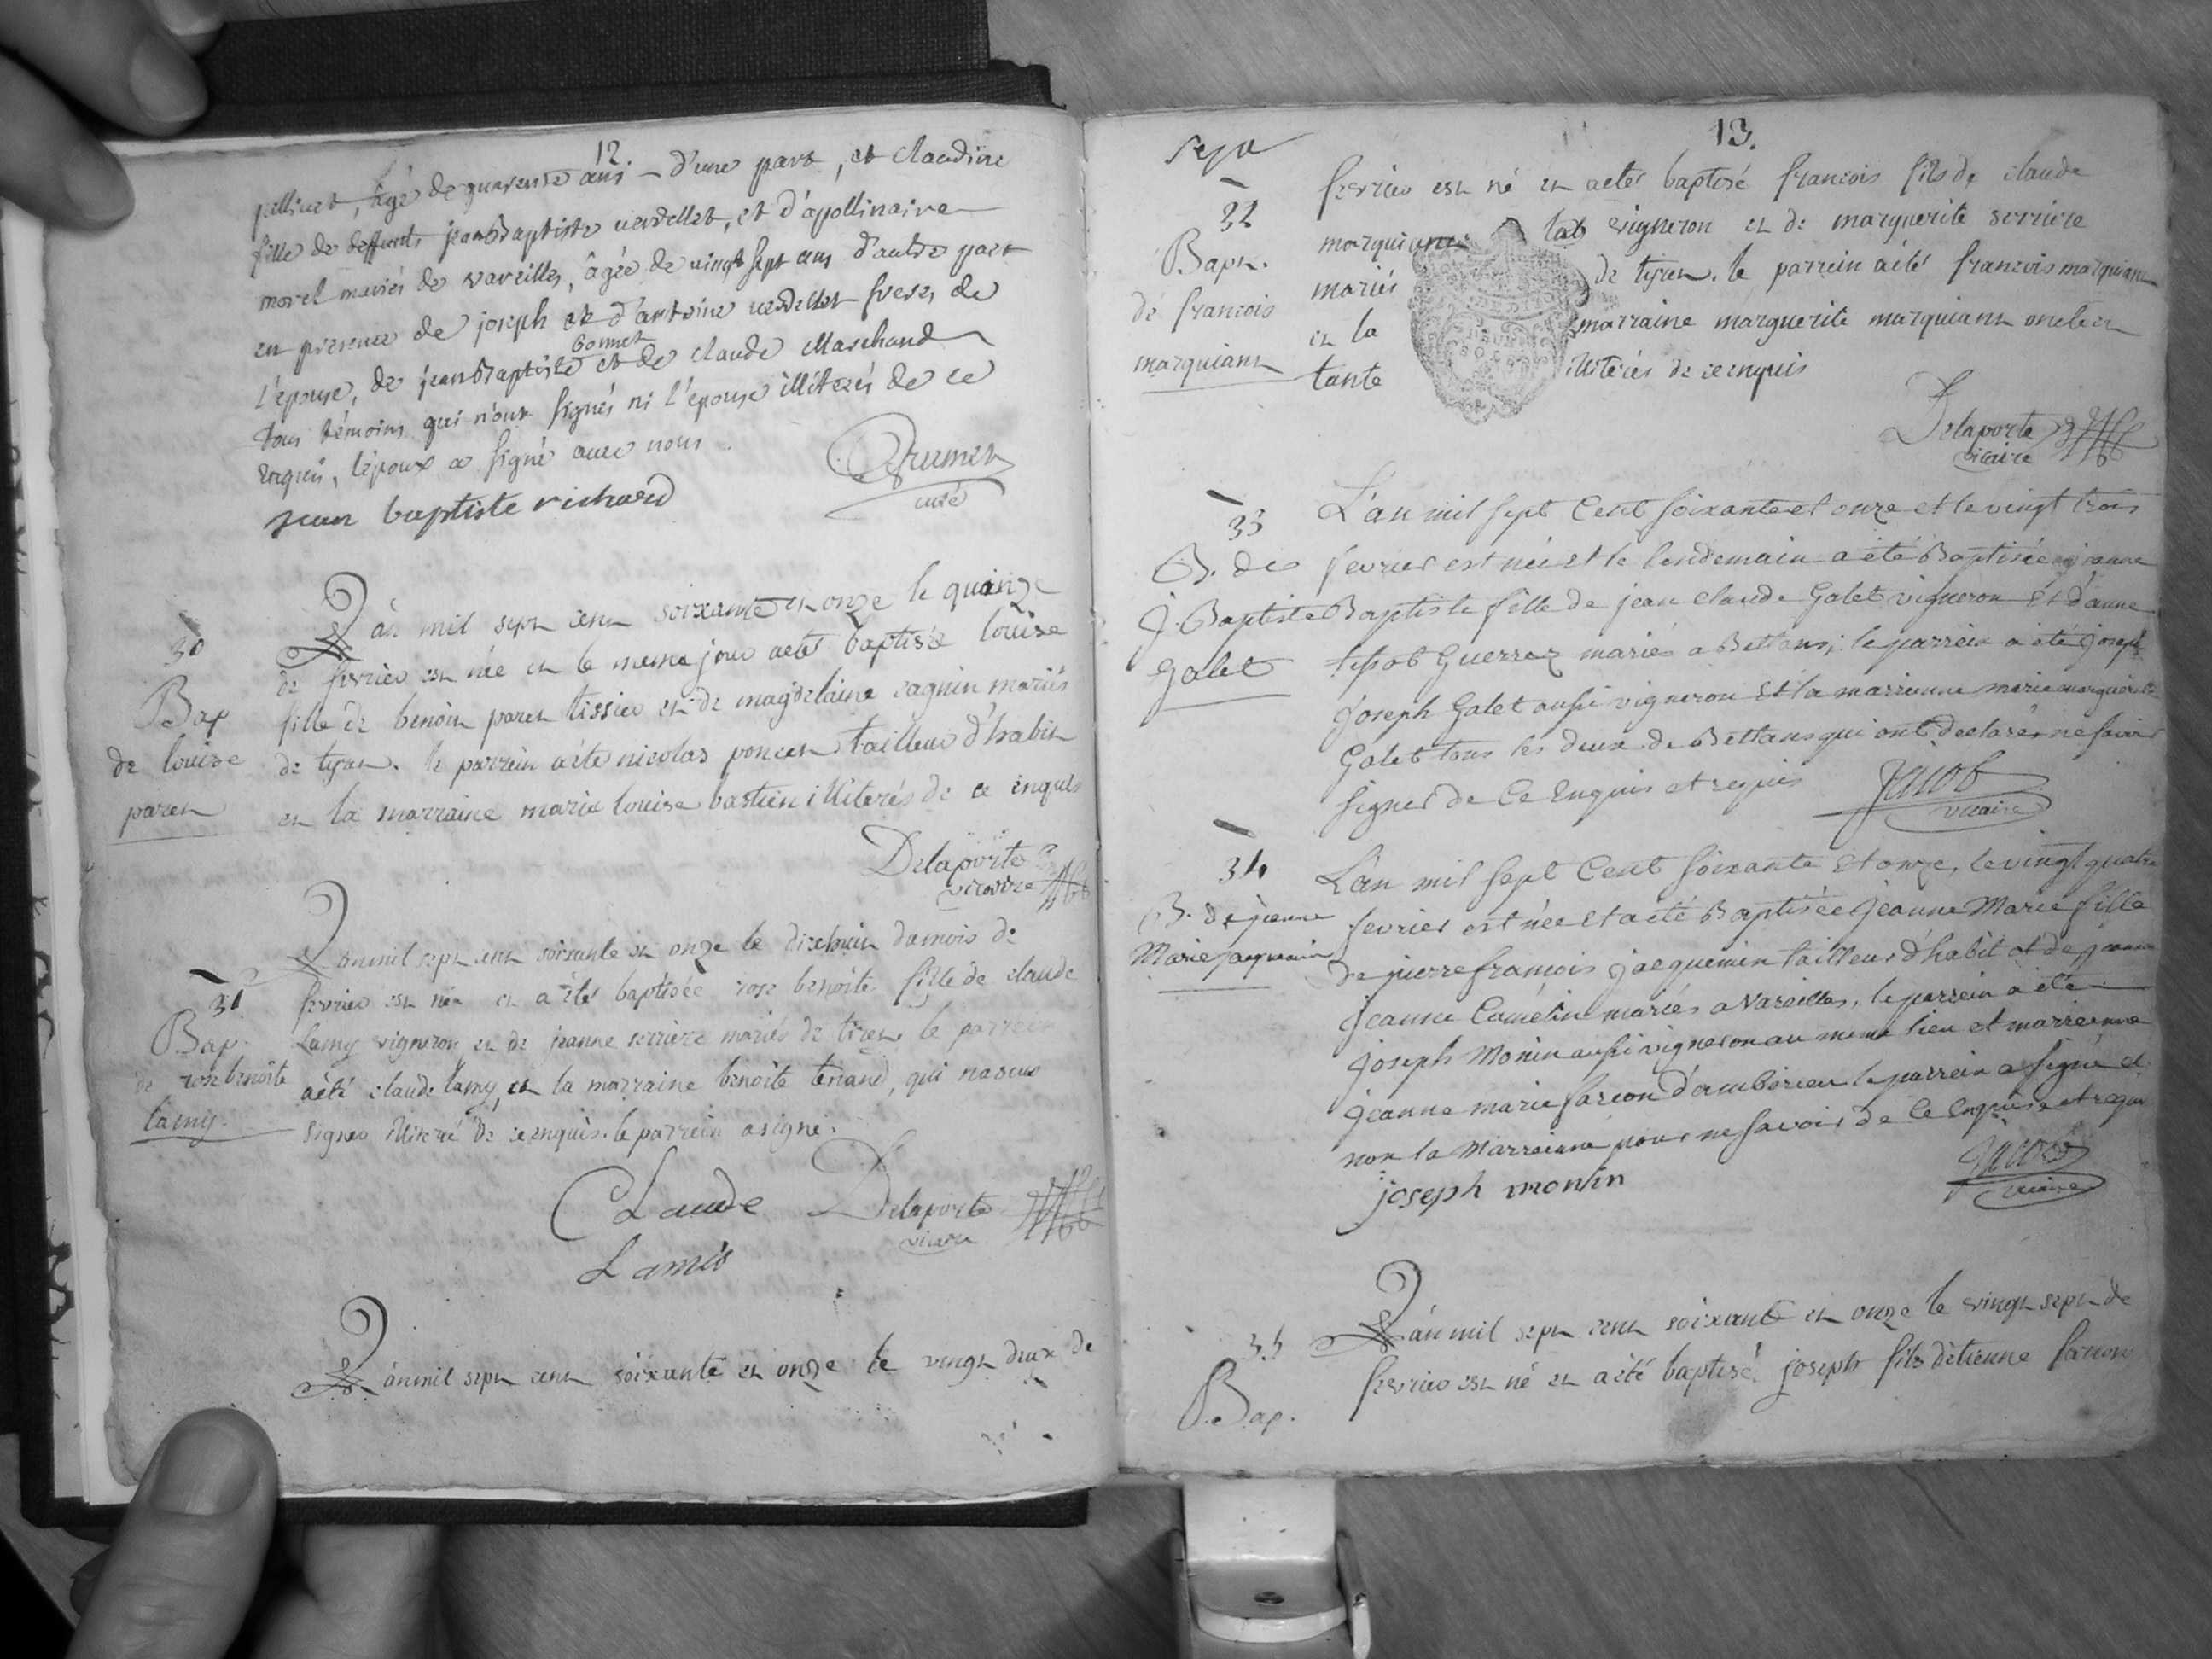 12.
pellinet, âgé de quarente ans - d'une part, et claudine
fille de deffunts jeanBaptiste verdellet, et d'apollinaire
morel mariés de vareilles, âgée de vingt sept ans d'autre part
en présence de joseph et d'antoine verdellet freres de
l'épouse, de jeanBaptiste bonnet et de claude Marchand
tous témoins qui n'ont signés ni l'épouse illiterés de ce
enquis, l'époux a signé avec nous.
jean baptiste richard
curé
30
Bap
de louise
paret
L'an mil sept cent soixante et onze le quinze
de fevrier est née et le meme jour aeté baptisée louise
fille de benoit paret tissier et de magdelaine cagnin mariés
de tiret. le parrein aété nicolas poncet tailleur d'habit
et la marraine marie louise bastien illiterés de ce enquis
Delaporte
vicaire
31
Bap.
de rose benoite
lamy.
L'an mil sept cent soixante et onze le dixhuit dumois de
fevrier est née et a été baptisée rose benoite fille de claude
Lamy vigneron et de jeanne serriere mariés de tiret le parrein
aété claude lamy, et la marraine benoite tenand, qui na sçus
signer illiteré de ce enquis. le parrein a signé.
Claude
Lamis
Delaporte
vicaire
L'an mil sept cent soixante et onze le vingt deux de
13.
sept
32
Bapt.
de francois
marquiant
fevrier est né et aeté baptisé francois fils de claude
marquiant vigneron et de marguerite serriere
mariés de tiret. le parrein aété francois marquiant
et la marraine marguerite marquiant oncle et
tante illiterés de ce enquis
Delaporte
vicaire
33
B. de
J. Baptiste
Galet
L'an mil sept Cent soixante et onze et le vingt trois
fevrier est née et le lendemain a été Baptisée jeanne
Baptiste fille de jean claude Galet vigneron Et d'anne
Guerrez mariés a Bettans; le parrein a été joseph
Joseph Galet aussi vigneron Et la marrienne marie marguerite
Galet tous les deux de Bettans qui ont declarés ne savoir
signer de Ce Enquis et requis
Jacob
vicaire
34
B. de jeanne
Marie jaquemin
L'an mil sept Cent soixante Et onze, le vingt quatre
fevrier est née Et a été Baptisée Jeanne Marie fille
de pierre françois jacquemin tailleur d'habit et de jeanne
jeanne Camelin mariés a Vareilles, le parrein a été
joseph Monin aussi vigneron au meme lieu et marrienne
jeanne marie farcon d'amberieu le parrein a signé et
non la Marrienne pour ne savoir de Ce Enquise et requise
joseph monin
Jacob
vicaire
35
Bap.
L'an mil sept cent soixante et onze le vingt sept de
fevrier est né et aété baptisé joseph fils détienne